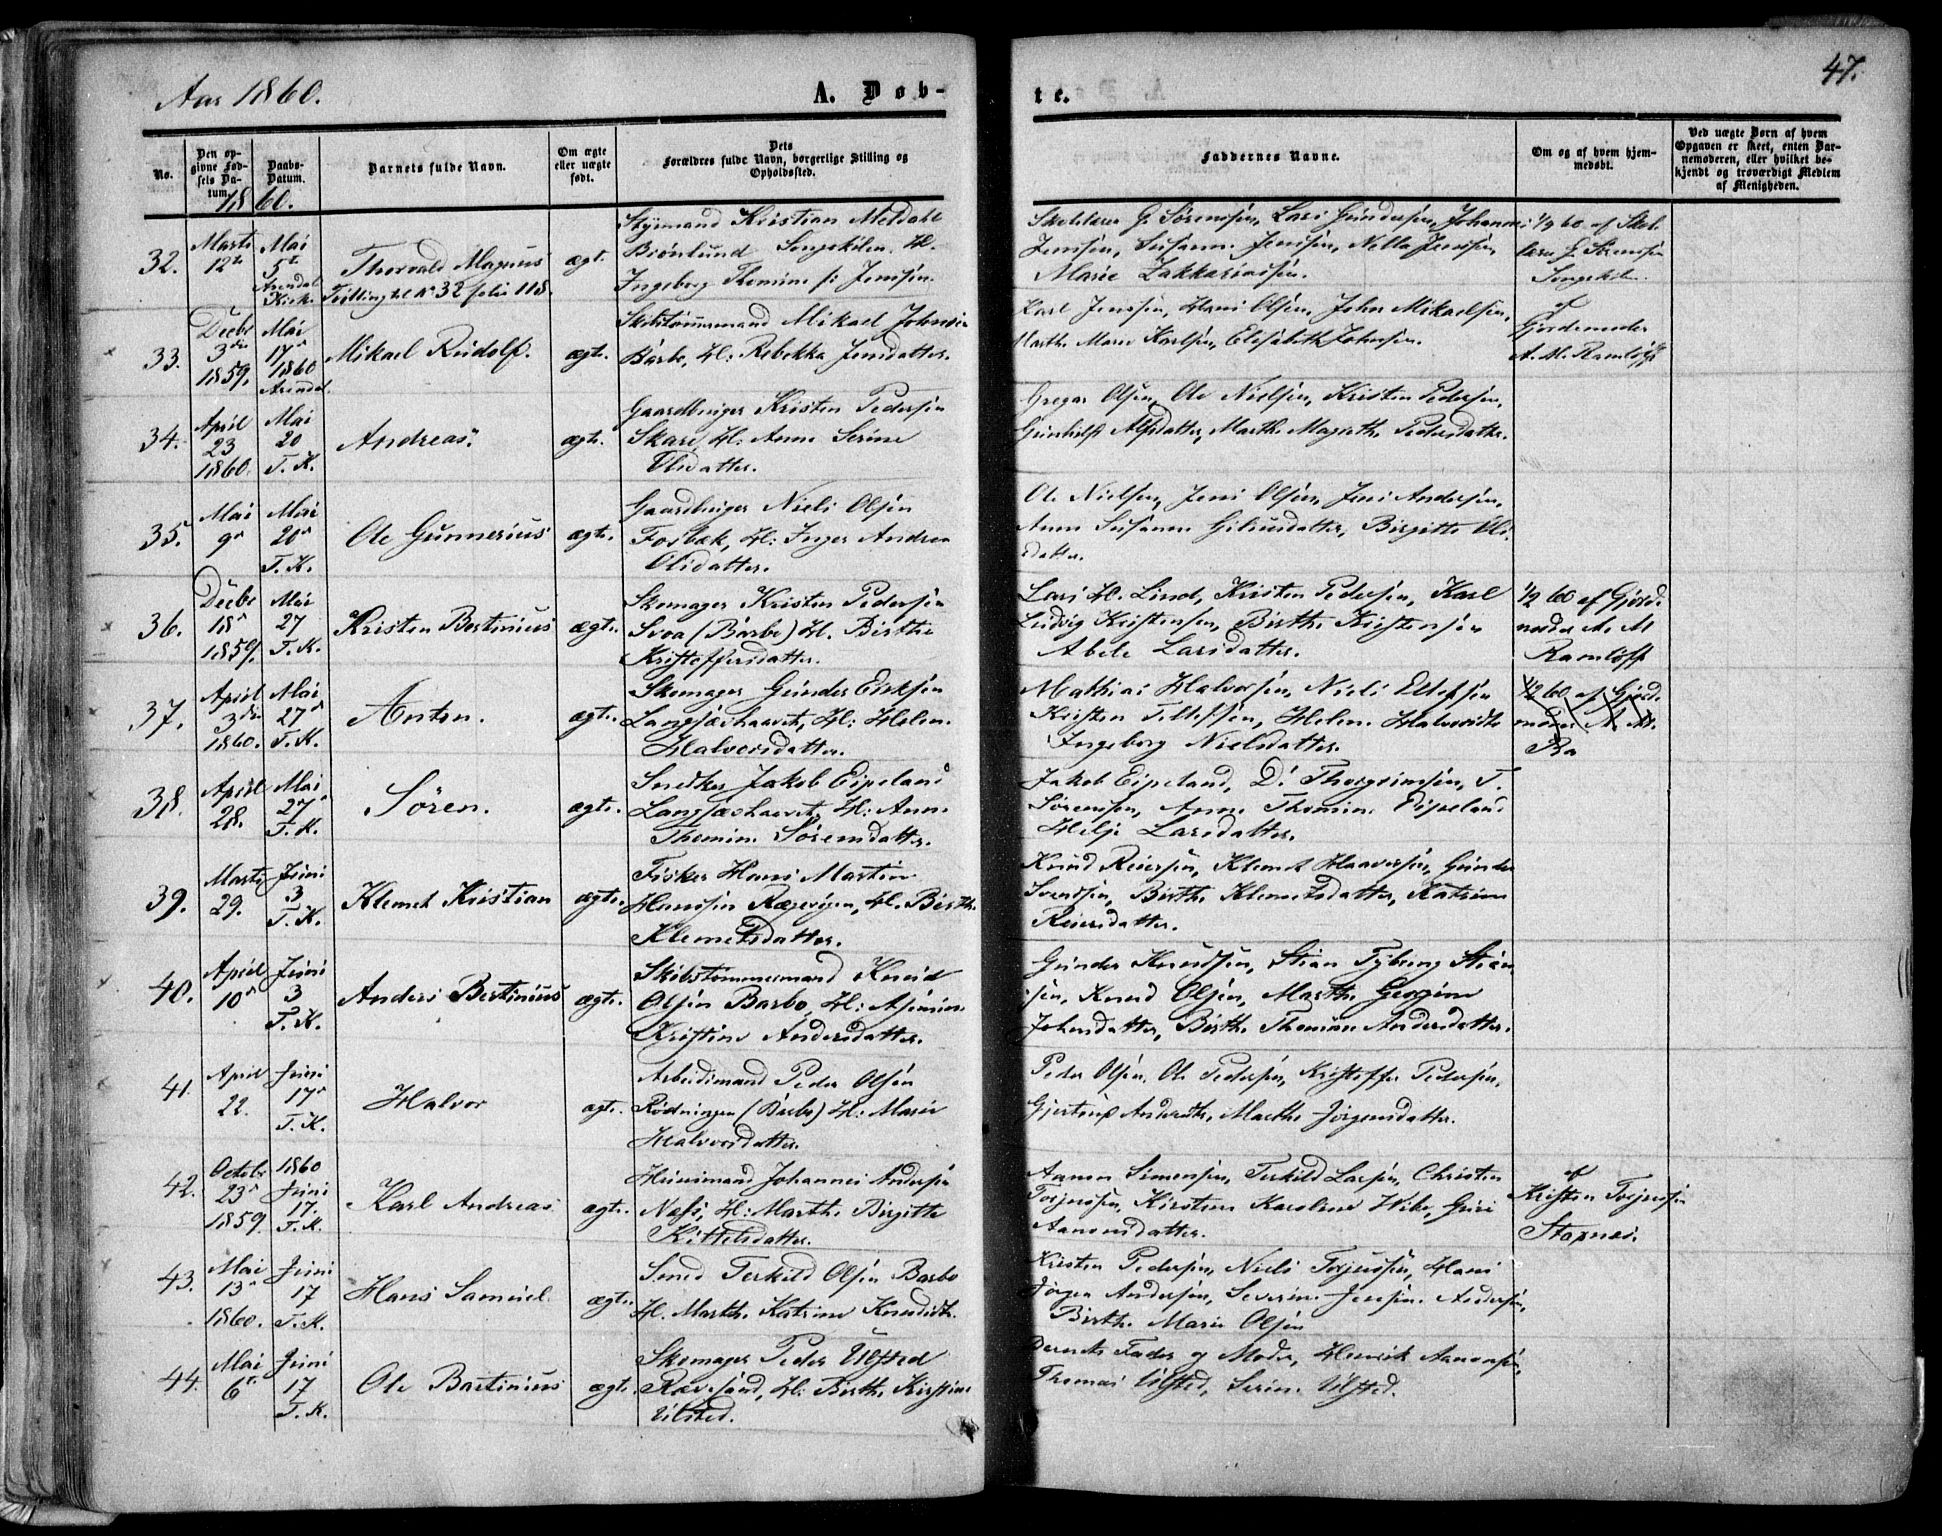 Aar 1860.
A. Døb-
te.
47.
No.
Den op-
givne Fød-
sels Da-
tum.
Daabs-
Datum.
Barnets fulde Navn.
Om ægte
eller uægte
født.
Dets
Forældres fulde Navn, borgerlige Stilling og
Opholdssted.
Faddernes Navne.
Om og af hvem hjem-
medøbt.
Ved uægte Børn af hvem
Opgaven er skeet, enten Bar-
nemoderen, eller hvilket be-
kjendt og troværdigt Medlem
af Menigheden.
1860.
32.
Marts
12te
Mai
5te
Arendal
Kirke
Thorvald Magnus
Tvilling til No 32 folio 118.
ægt.
Styrmand Kristian Meldahl
Brönlund Songekilen H.
Ingeborg Thomine f: Jenssen.
Skolelærer G. Sörenssen, Lars Gundersen, Johannes
Jenssen, Susanne Jenssen, Nella Jenssen,
Marie Zakkariassen.
1/9 60. af Skol
lærer G. Sörenssen
Songekilen
33.
Decbr
3die
1859.
Mai
17de
1860
Arendal
Mikael Rudolf.
ægte.
Skibstömmermand Mikael Johnsen
Barbo, H: Rebekka Jensdatter.
Karl Jenssen, Hans Olsen, John Mikaelsen,
Marthe Marie Karlsen, Elisabeth Johnsen.
af
Gjordemoder
A. M. Ramlöff
34.
April
23
1860.
Mai
20
T. K.
Andreas.
ægte.
Gaardbruger Kristen Pedersen
Skare, H: Anne Serine
Olsdatter.
Gregar Olsen, Ole Nielsen, Kristen Pedersen,
Gunhild Alfsdatter, Marthe Magrethe Pedersdatter.
35.
Mai
9de
Mai
20de
T. K.
Ole Gunnerius
ægte.
Gaardbruger Niels Olsen
Fosbæk, H: Inger Andrea
Olsdatter.
Ole Nielsen, Jens Olsen, Jens Andersen,
Anne Susanne Giliusdatter, Birgitte Ols
datter.
36.
Decbr
18de
1859.
Mai
27
T. K.
Kristen Bertinius
ægte.
Skomager Kristen Pedersen
Svoa (Barbo) H. Birthe
Kristoffersdatter.
Lars H. Lind, Kristen Pedersen, Karl
Ludvig Kristensen, Birthe Kristensen
Abele Larsdatter.
1/2 60 af Gjord.
moder A. M
Ramlöff
37.
April
3die
1860.
Mai
27de
T. K.
Anton.
ægte.
Skomager Gunder Eriksen
Langsæshaavet, H: Helene
Halvorsdatter.
Mathias Halvorsen, Niels Ellefsen
Kristen Tellefsen, Helene Halvorsdtr
Ingeborg Nielsdatter.
1/2 60 af Gjord.
moder A. M.
Ra
38.
April
28.
Mai
27de
T. K.
Sören.
ægte.
Snedker Jakob Eipeland
Langsæshaavet, H: Anne
Thomine Sörensdatter.
Jakob Eipeland, D. Thorgrimsen, T.
Sörenssen, Anne Thomine Eipeland
Hilje Larsdatter.
39.
Marts
29.
Juni
3
T. K.
Klemet Kristian
ægte.
Fisker Hans Martin
Hanssen Rægevigen, H. Birthe
Klemetsdatter.
Knud Reiersen, Klemet Haavorsen, Gunder
Svendsen, Birthe Klemetsdatter, Katrine
Reiersdatter.
40.
April
10de
Juni
3
T. K.
Anders Bertinius
ægte.
Skibstömmermand Knud
Olsen Barbo, H: Asperine
Kristine Andersdatter.
Gunder Knudsen, Stian Tybring Stian
sen, Knud Olsen, Marthe Georgine
Johnsdatter, Birthe Thomine Andersdatter.
41.
April
22.
Juni
17de
T. K.
Halvor
ægte.
Arbeidsmand Peder Olsen
Rödningen (Barbo) H: Maria
Halvorsdatter.
Peder Olsen, Ole Pedersen, Kristoffer Pedersen,
Gjertrud Andersdtr, Marthe Jörgensdatter.
42.
Octobr
23de
1859.
1860
Juni
17.
T. K.
Karl Andreas
ægte.
Huusmand Johannes Andersen
Næss, H: Marthe Birgitte
Kittelsdatter.
Aanon Simonsen, Terkild Larsen, Christen
Torjussen, Kirstine Karoline Wibe, Guri
Aanonsdatter.
af
Kristen Torjussen
Stoxnes.
43.
Mai
13de
1860.
Juni
17
T. K.
Hans Samuel.
ægte.
Smed Terkild Olsen Barbo
H. Marthe Katrine Knudsdtr.
Kristen Pedersen, Niels Torjussen, Hans
Jörgen Andersen, Severine Jenssen Andersen,
Birthe Marie Olsen
44.
Mai
6te
Juni
17
T. K.
Ole Bertinius
ægte.
Skomager Peder Ulsted
Rævesand, H: Birthe Kirstine
Ulsted.
Barnets Fader og Moder, Henrik Aanonsen,
Thomas Ulsted, Serine Ulsted.